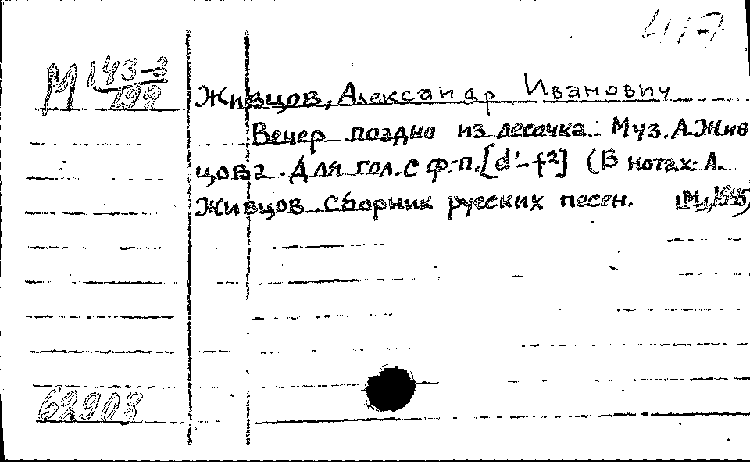 М 143-3
199
Живцов, Александр Иванович
Вечер поздно из лесочка. Муз. А. Жив
цова. Для гол. с ф.-п. [d'-f²] (В нотах: А.
Живцов. Сборник русских песен.
68908